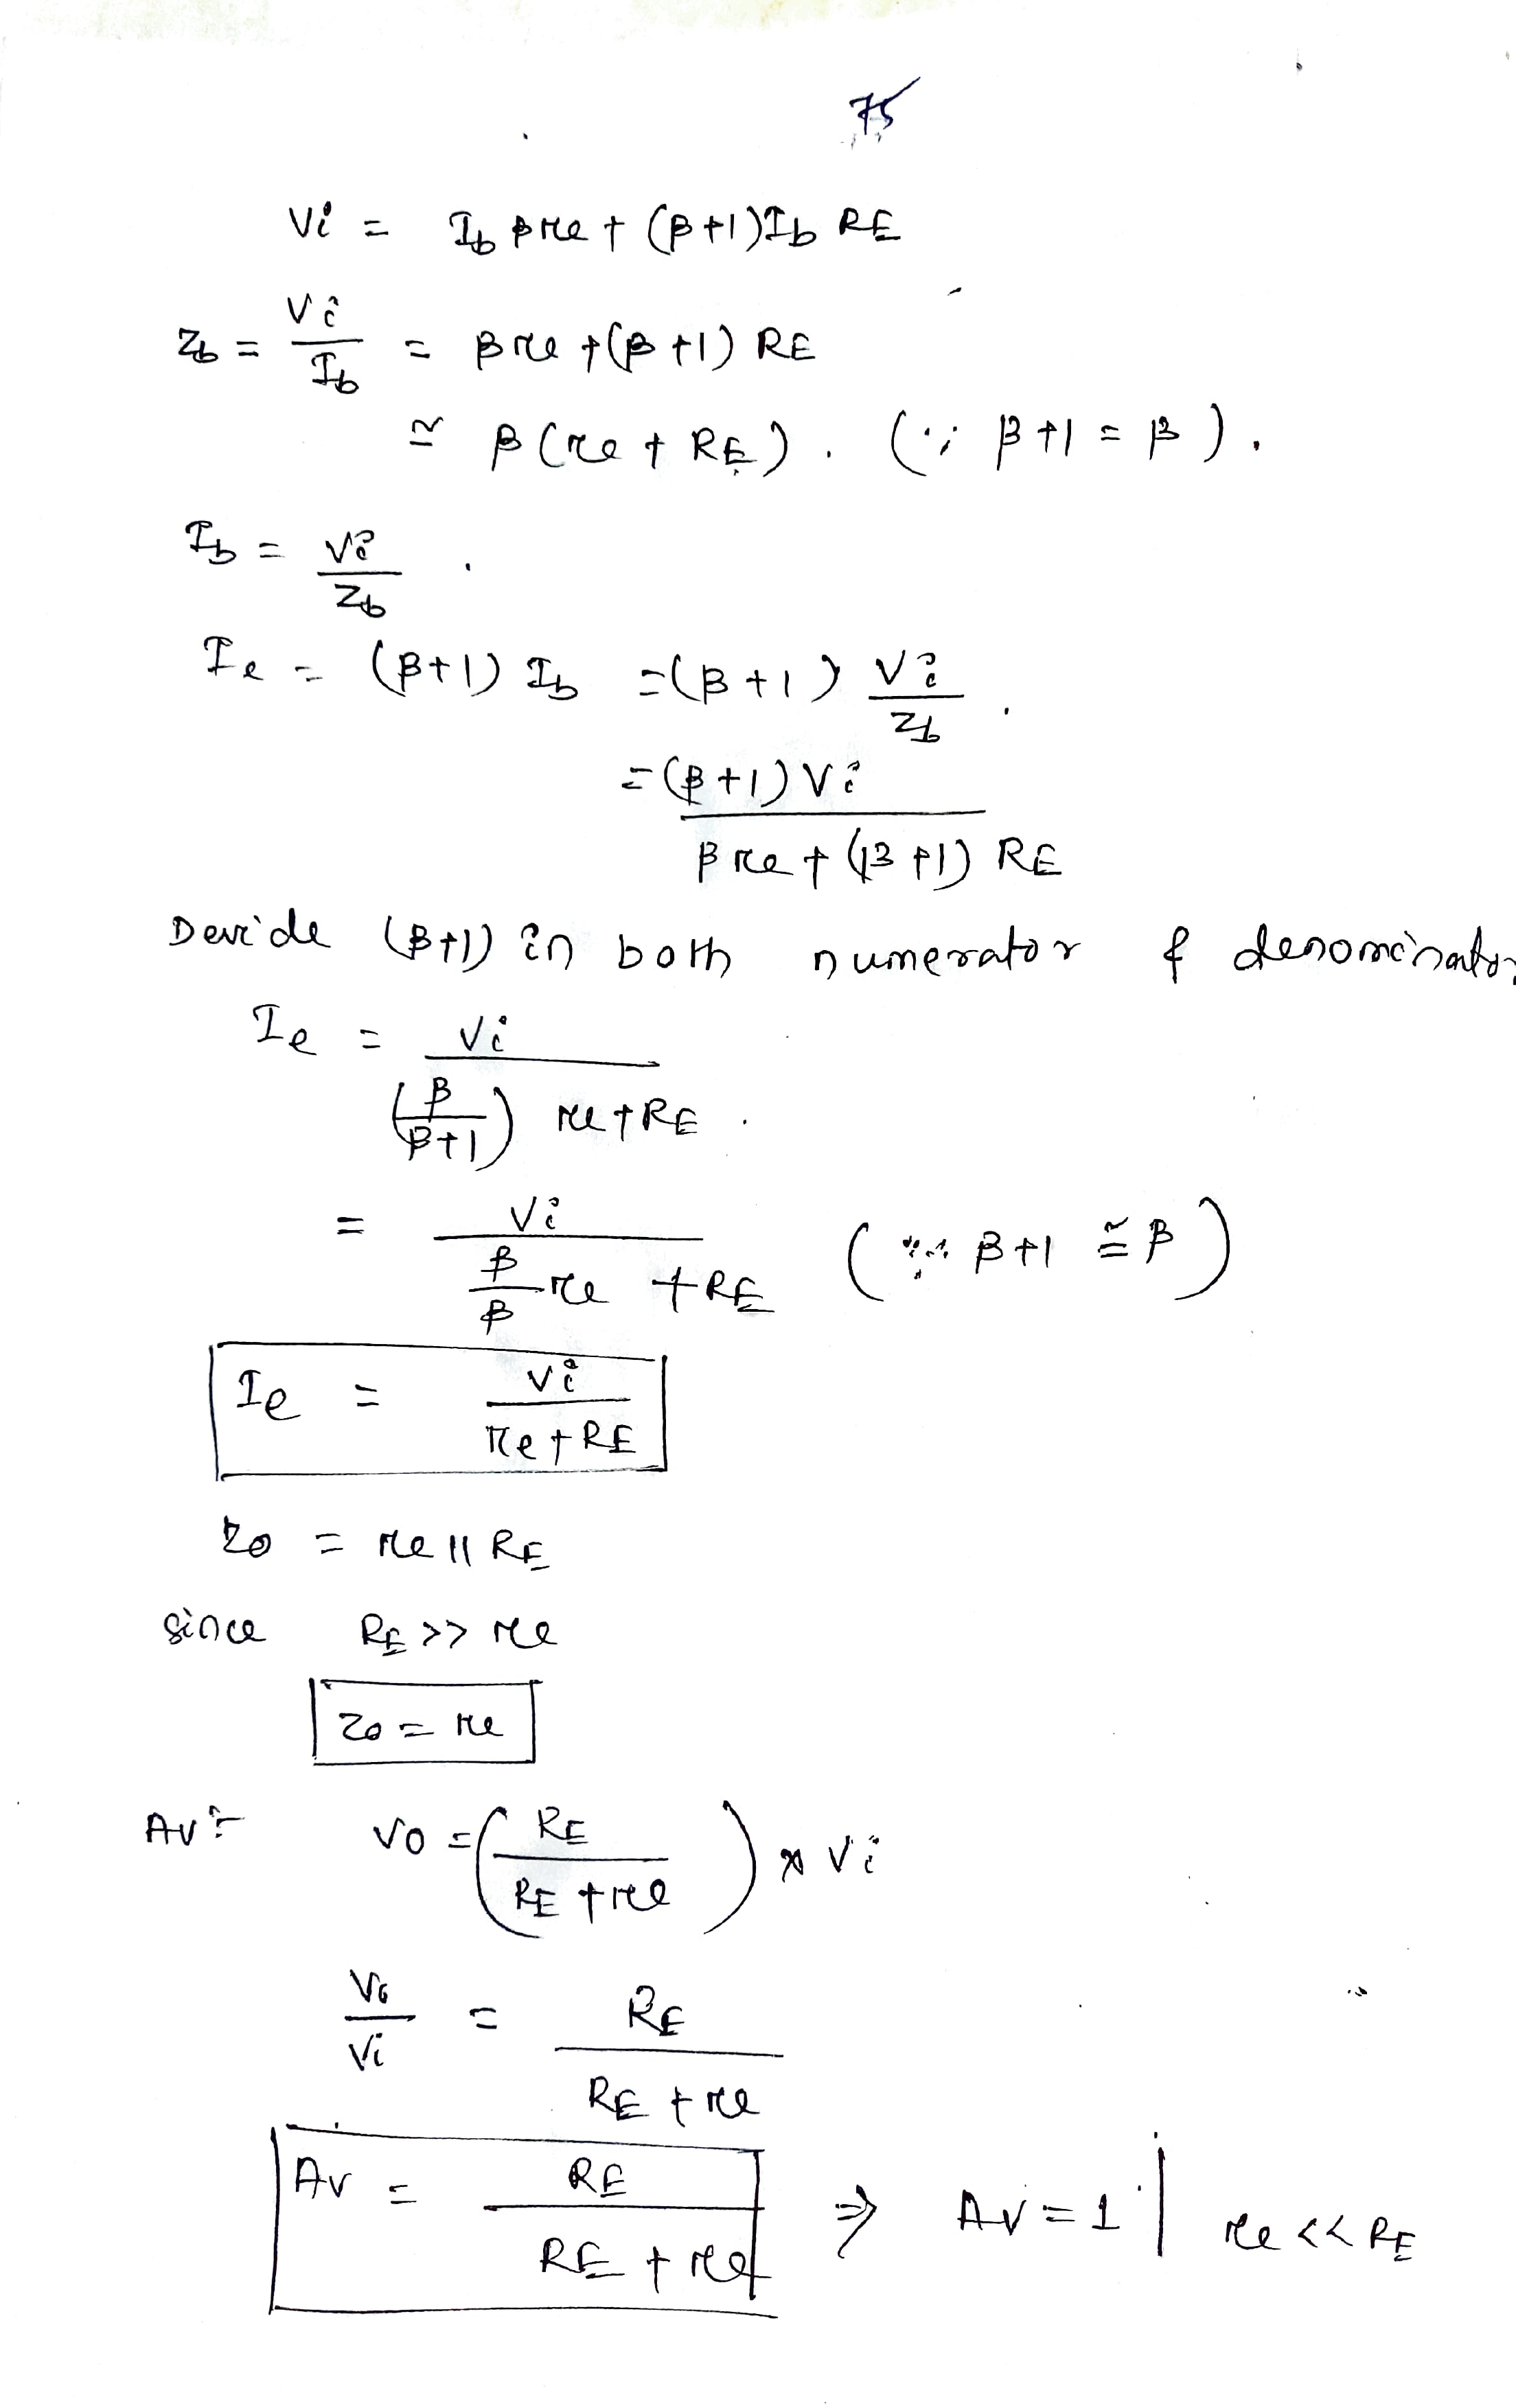 75
Vi = Ib βre + (β+1)Ib RE
Zb = Vi/Ib = βre + (β+1) RE
≅ β(re + RE). (∵ β+1 = β).
Ib = Vi/Zb .
Ie = (β+1) Ib = (β+1) Vi/Zb .
= (β+1)Vi / βre + (β+1) RE
Devide (β+1) in both numerator & denominator
Ie = Vi / (β/β+1) re + RE .
= Vi / β/β re + RE (∵ β+1 ≅ β)
Ie = Vi / re + RE
Zo = re || RE
since RE >> re
Zo = re
Av :- Vo = (RE / RE + re) × Vi
Vo/Vi = RE / RE + re
Av = RE / RE + re ⇒ Av = 1 | re << RE